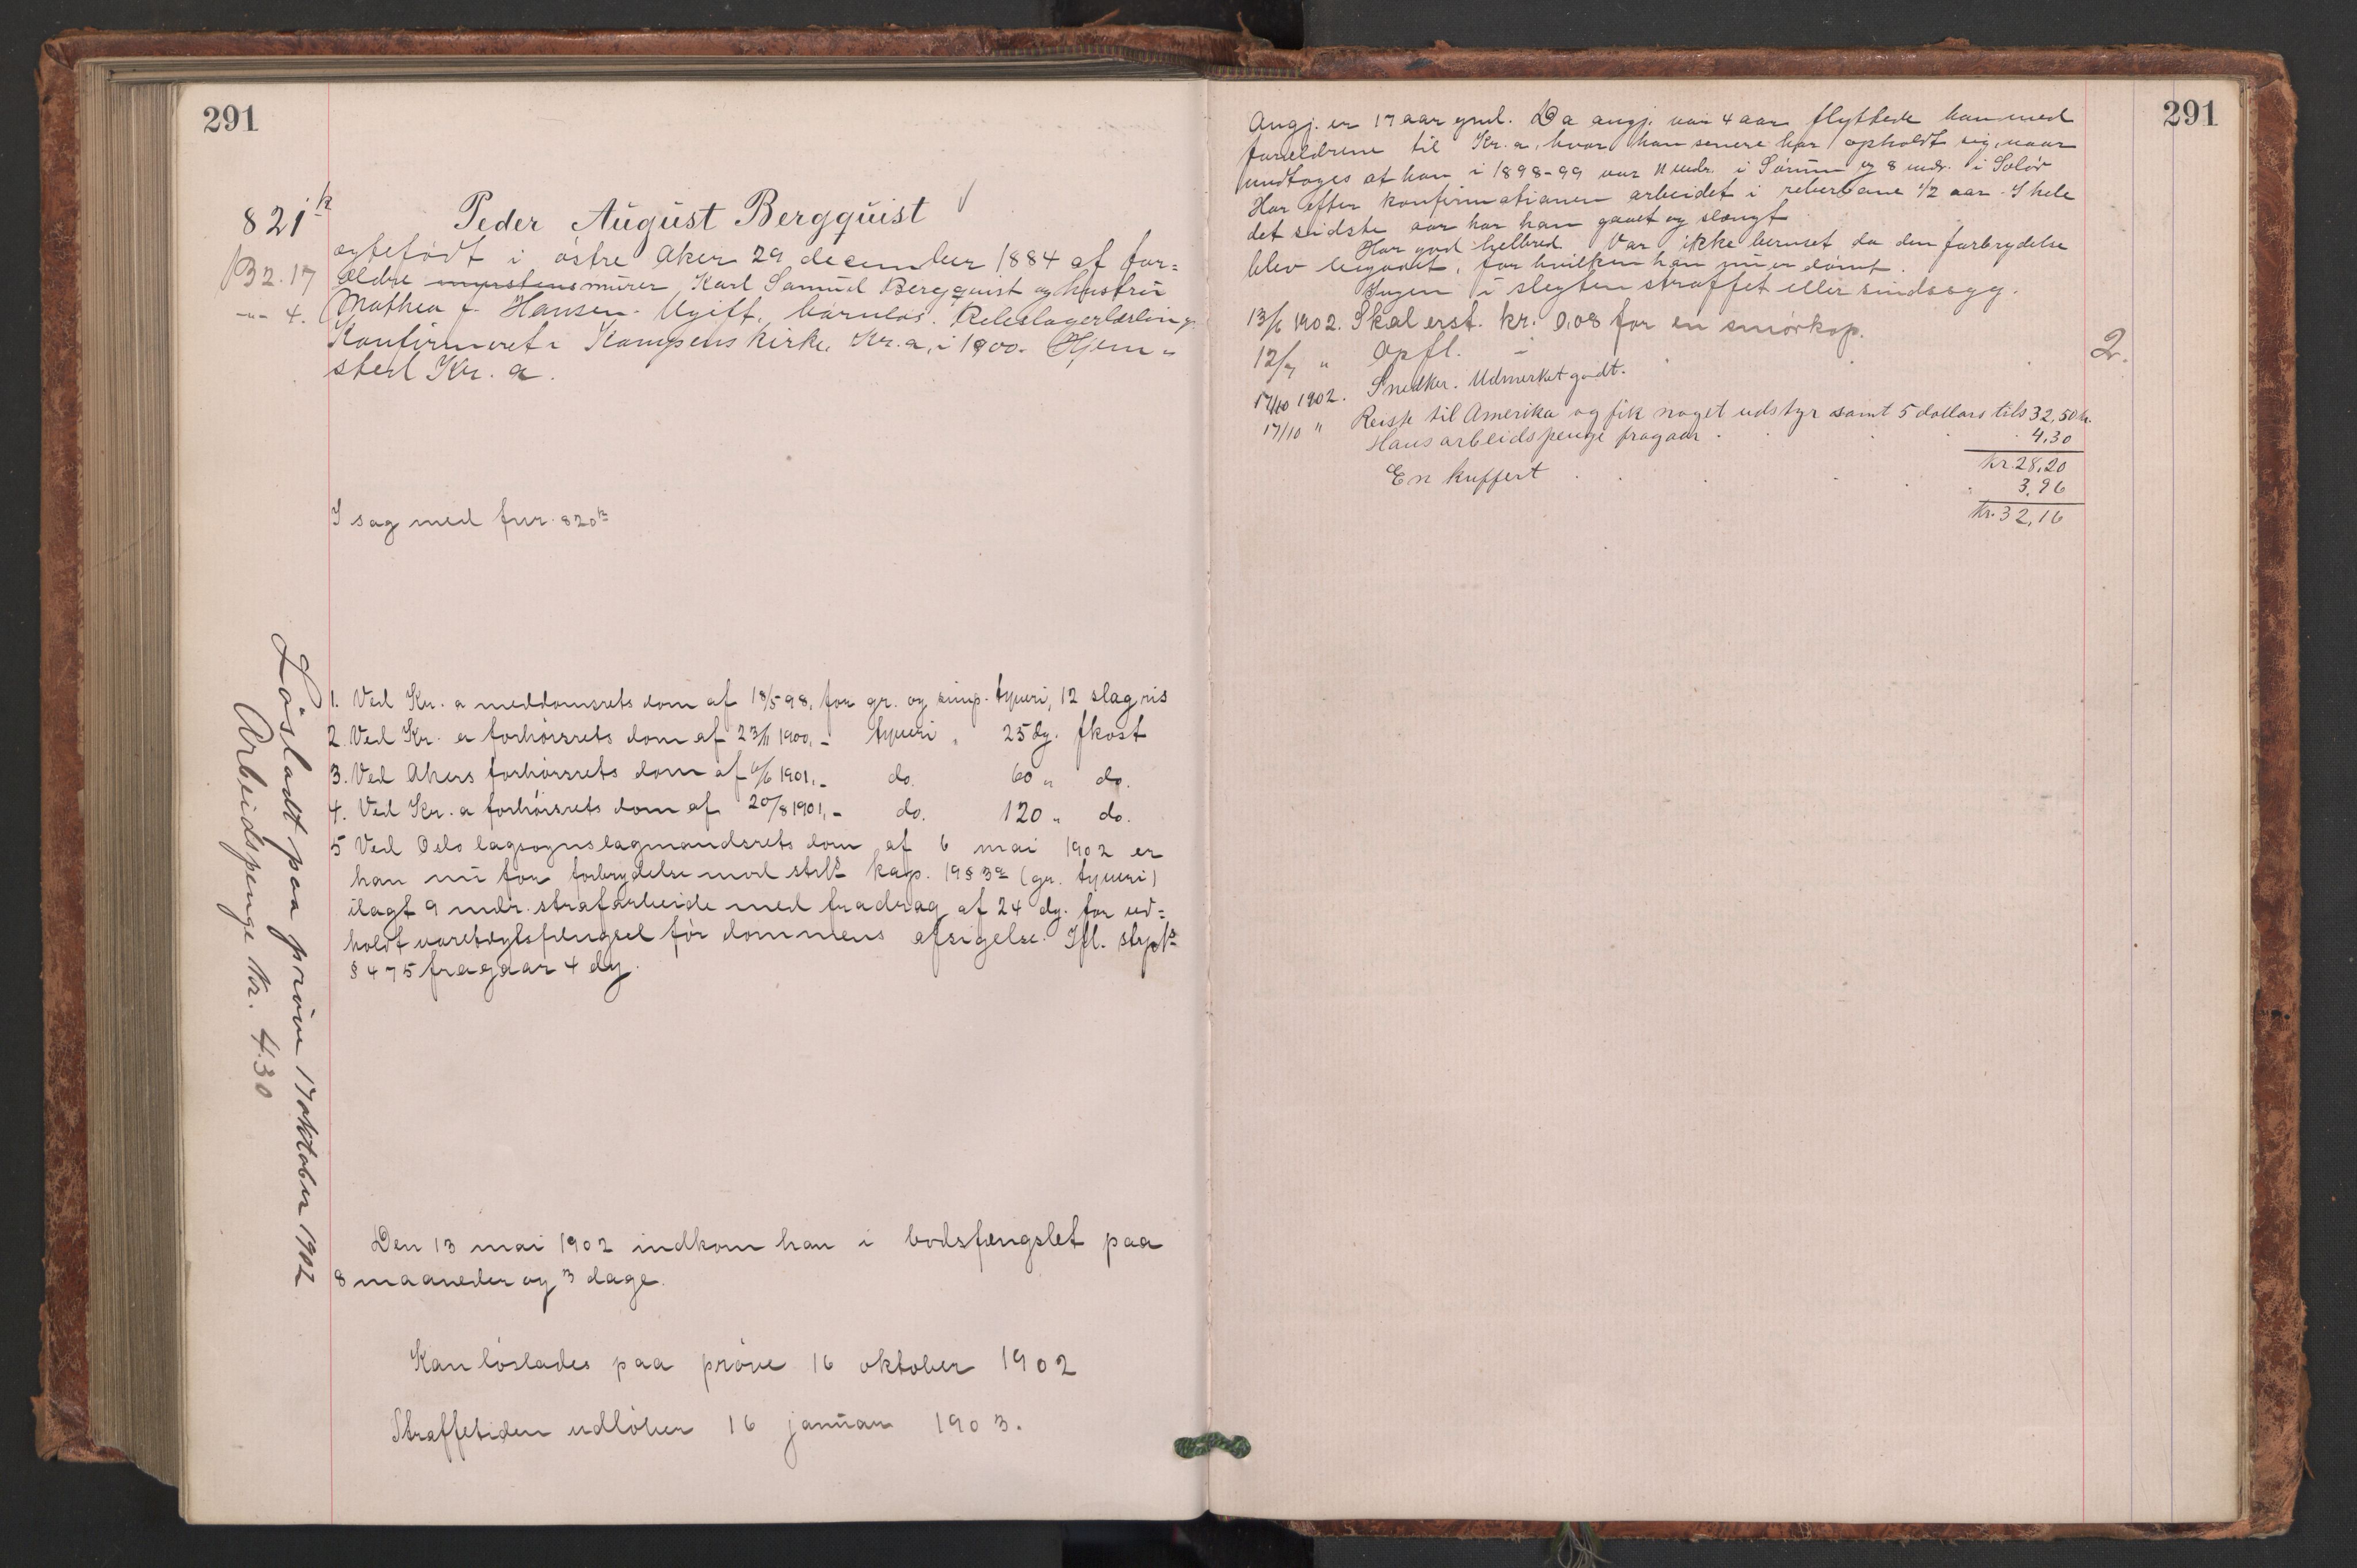 291
821k
Peder August Bergquist
B2.17
-"- 4.
ægtefødt i østre Aker 29 december 1884 af for=
ældre myrstensmurer Karl Samuel Bergquist og hustru
Mathea f. Hansen. Ugift, barnløs. Rebslagerlærling.
Konfirmeret i Kampens kirke, Kr.a, i 1900. Hjem=
sted Kr.a.
I sag med fnr. 820k
1. Ved Kr.a meddomsrets dom af 18/5 98, for gr. og simp. tyveri, 12 slag ris
2. Ved Kr.a forhørsrets dom af 23/11 1900, - tyveri " 25 dg. fkost
3. Ved Akers forhørsrets dom af 6/6 1901, - do. 60 " do.
4. Ved Kr.a forhørsrets dom af 20/8 1901, - do. 120 " do.
5 Ved Oslo lagsognslagmandsrets dom af 6 mai 1902 er
han nu for forbrydelse mod strls kap. 19 § 3 (gr. tyveri)
ilagt 9 mdr. strafarbeide med fradrag af 24 dg. for ud=
holdt varetægtsfængsel før dommens afsigelse. Ifl. strpls
§ 475 fragaar 4 dg.
Den 13 mai 1902 indkom han i bodsfængslet paa
8 maaneder og 3 dage.
Kan løslades paa prøve 16 oktober 1902
Straffetiden udløber 16 januar 1903.
Løsladt paa prøve 17 oktober 1902
Arbeidspenge kr. 4.30
291
Angj. er 17 aar gml. Da angj. var 4 aar flyttede han med
forældrene til Kr.a, hvor han senere har opholdt sig, naar
undtages at han i 1898-99 var 11 mdr. i Sørum og 8 mdr. i Solør
Har efter konfirmationen arbeidet i reberbane 1/2 aar. I hele
det sidste aar har han gaaet og slængt.
Har god helbred. Var ikke beruset da den forbrydelse
blev begaaet, for hvilken han nu er dømt.
Ingen i slegten straffet eller sindssyg.
13/6 1902. Skal erst. kr. 0,08 for en smørkop.
12/9 " Opfl. - 2.
17/10 1902. Snedker. Udmerket godt.
17/10 " Reiste til Amerika og fik noget udstyr samt 5 dollars tils 32,50 kr.
Hans arbeidspenge fragaar . . . 4,30
kr. 28,20
En kuffert . . . " 3,96
kr. 32,16